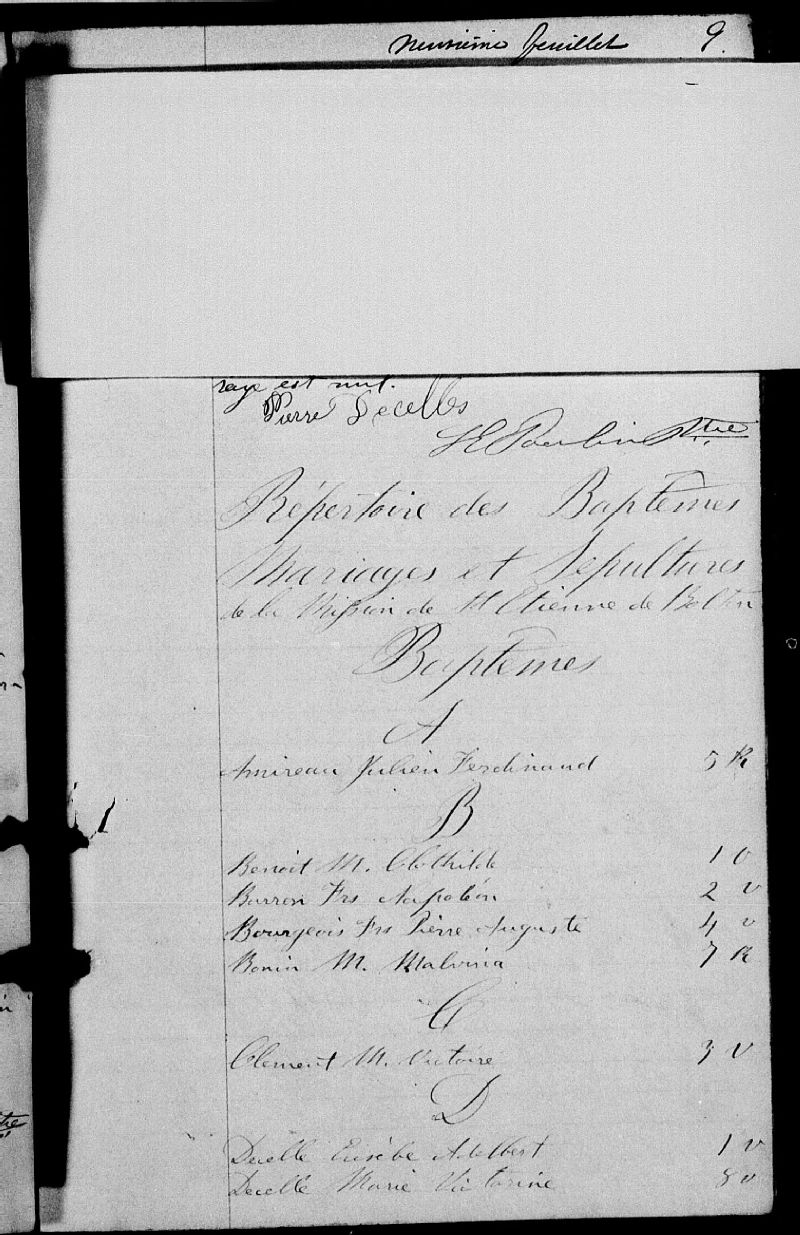 neuvième feuillet 9.
raye est nul.
Pierre Decelles
Ptre
Répertoire des Baptêmes
Mariages et Sépultures
de la Mission de St Etienne de Bolton
Baptêmes
A
Amireau Julien Ferdinand 5 R
B
Benoit M. Clothilde 1 V
Barron Frs Napoléon 2 v
Bourgeois Frs Pierre Auguste 4 v
Bonin M. Malvina 7 R
C
Clement M. Victoire 3 V
D
Decelle Eusèbe Adelbert 1 v
Decelle Marie Victorine 8 v